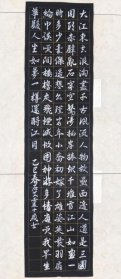 大江東去浪淘盡千古風流人物故壘西邊人道是三國
周郎赤壁亂石穿空驚濤拍岸捲起千堆雪江山如畫一
時多少豪傑遙想公瑾當年小喬初嫁了雄姿英發羽扇
綸巾談笑間檣櫓灰飛煙滅故國神遊多情應笑我早生
華髮人生如夢一樽還酹江月 乙巳春